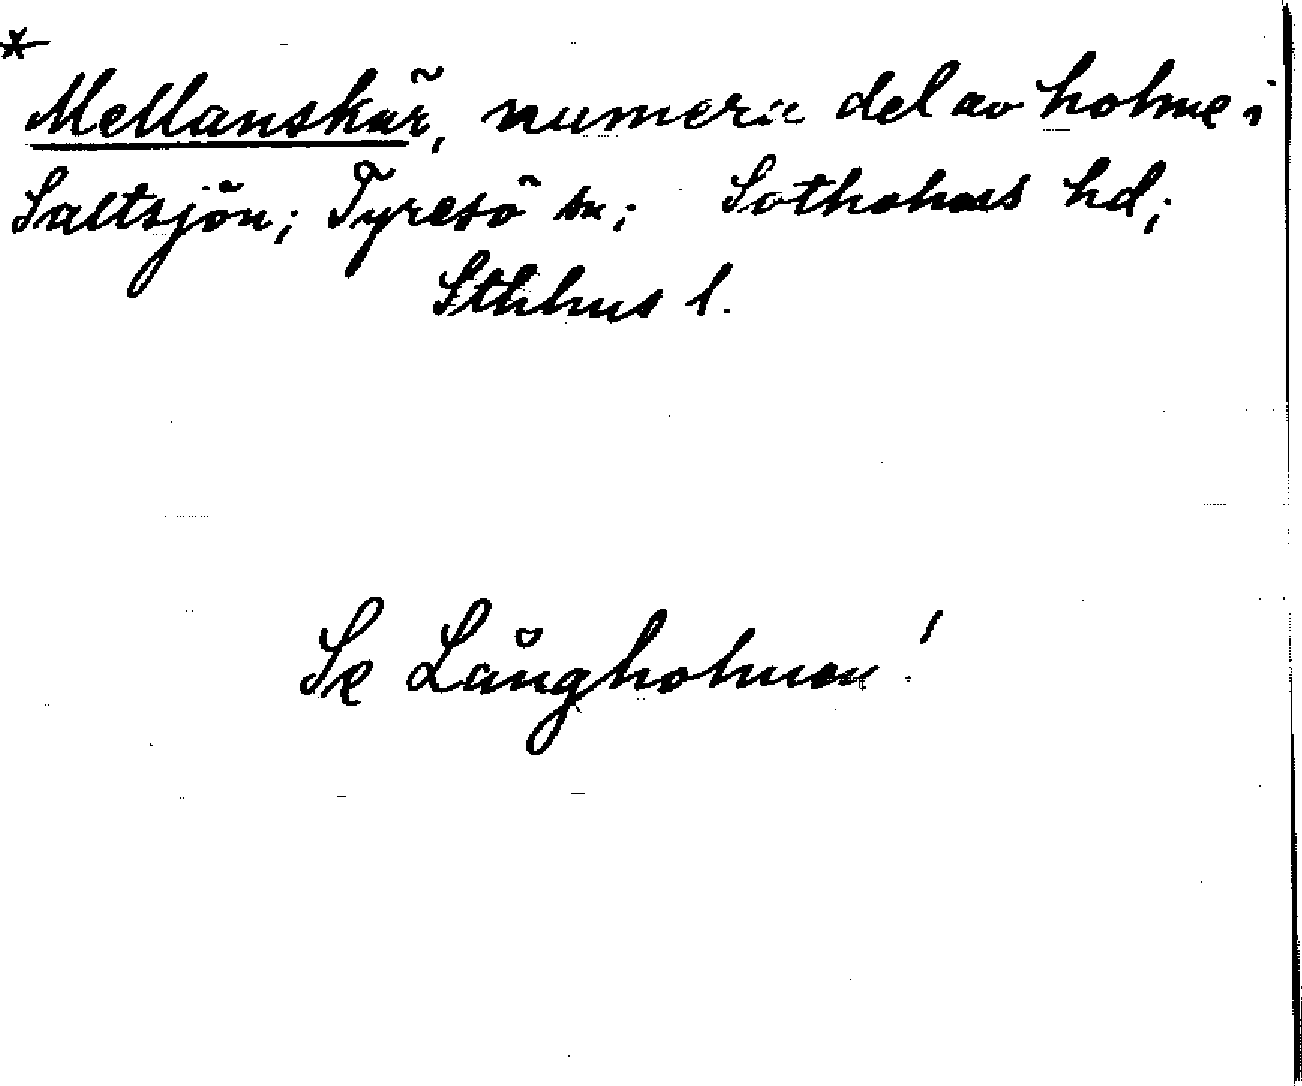 *
Mellanskär, numera del av holme i
Saltsjön; Tyresö sn; Sotholms hd;
Sthlms l.
Se Långholmen!